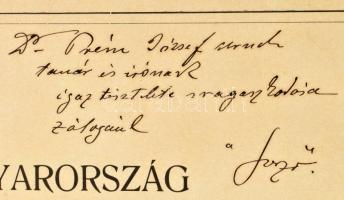 Dr Prém József urnak
tanár és irónak
igaz tisztelete s ragaszkodása
zálogául
a Szerző.
YARORSZÁG